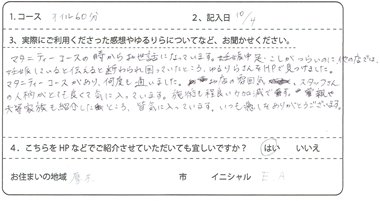 1.コース オイル60分 2、記入日 10/4
3、実際にご利用くださった感想やゆるりらについてなど、お聞かせください。
マタニティーコースの時からお世話になっています。妊娠中 足・こしがつらいのに他の店では、
妊娠していると伝えると断わられ困っていたところ、ゆるりらさんをHPで見つけました。
マタニティーコースがあり、何度も通いました。お店の雰囲気、スタッフさん
の人柄がとても良くて気に入っています。技術も程良い力加減です。親や
夫等家族も紹介したところ、気に入っています。いつも癒しをありがとうございます。
4、こちらをHPなどでご紹介させていただいても宜しいですか? はい いいえ
お住まいの地域 厚木 市 イニシャル E A